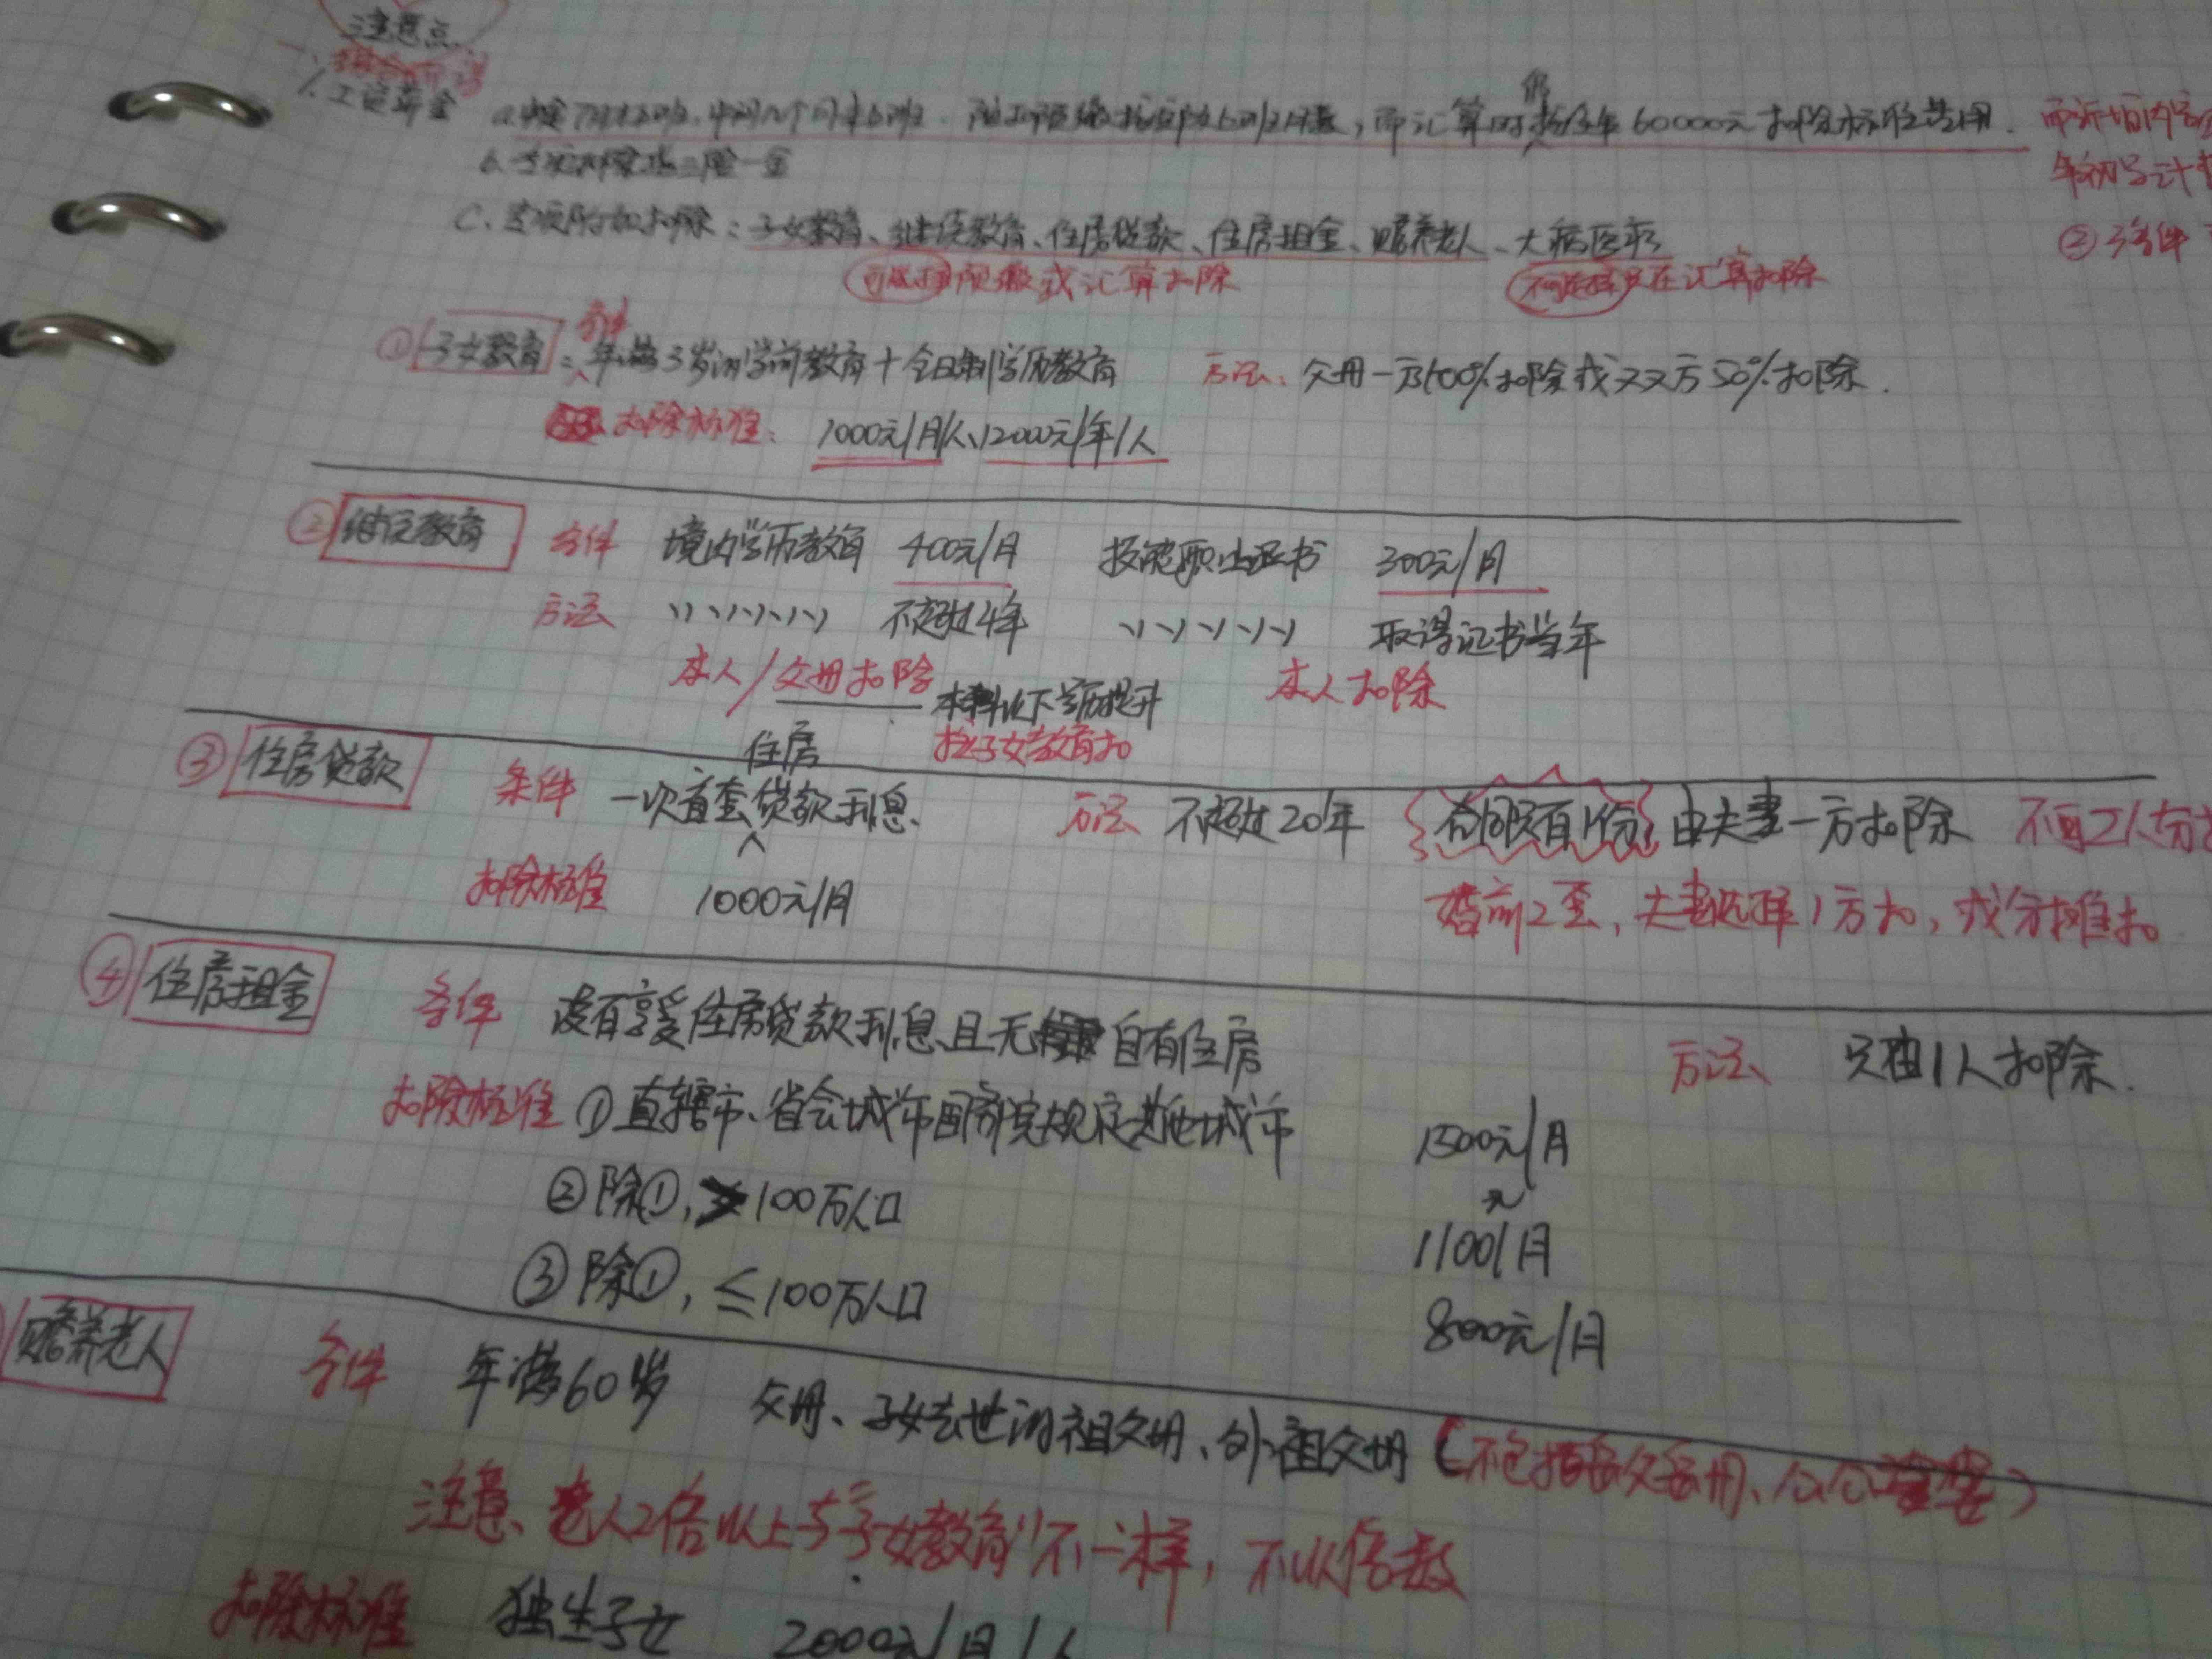 注意点
一、综合所得
1. 工资薪金
而计算时仍按全年60000元扣除标准费用.
b. 专项扣除：三险一金
年初 计
C. 专项附加扣除：子女教育、继续教育、住房贷款、住房租金、赡养老人、大病医疗
② 条件
预缴或汇算扣除
只在汇算扣除
① 子女教育：条件 年满3岁的学前教育+全日制学历教育 方法：父母一方100%扣除或双方50%扣除.
扣除标准：1000元/月/人、12000元/年/人
② 继续教育 条件 境内学历教育 400元/月 技能职业证书 300元/月
方法 ヽヽヽヽヽヽ 不超过4年 ヽヽヽヽヽ 取得证书当年
本人/父母扣除 本科以下学历提升 本人扣除
按子女教育扣
③ 住房贷款 条件 一次首套住房贷款利息. 方法 不超过20年 合同只有1份 由夫妻一方扣除 不可2人分
扣除标准 1000元/月 婚前2套，夫妻选择1方扣，或分摊扣
④ 住房租金 条件 没有享受住房贷款利息且无自有住房 方法 只由1人扣除.
扣除标准 ①直辖市、省会城市国务院规定其他城市 1500元/月
②除①，>100万人口 1100元/月
③除①，≤100万人口 800元/月
赡养老人 条件 年满60岁 父母、子女去世的祖父母、外祖父母（不包括岳父岳母、公公婆婆）
注意、老人2倍以上与子女教育不一样，不以倍数
扣除标准 独生子女 2000元/月/人